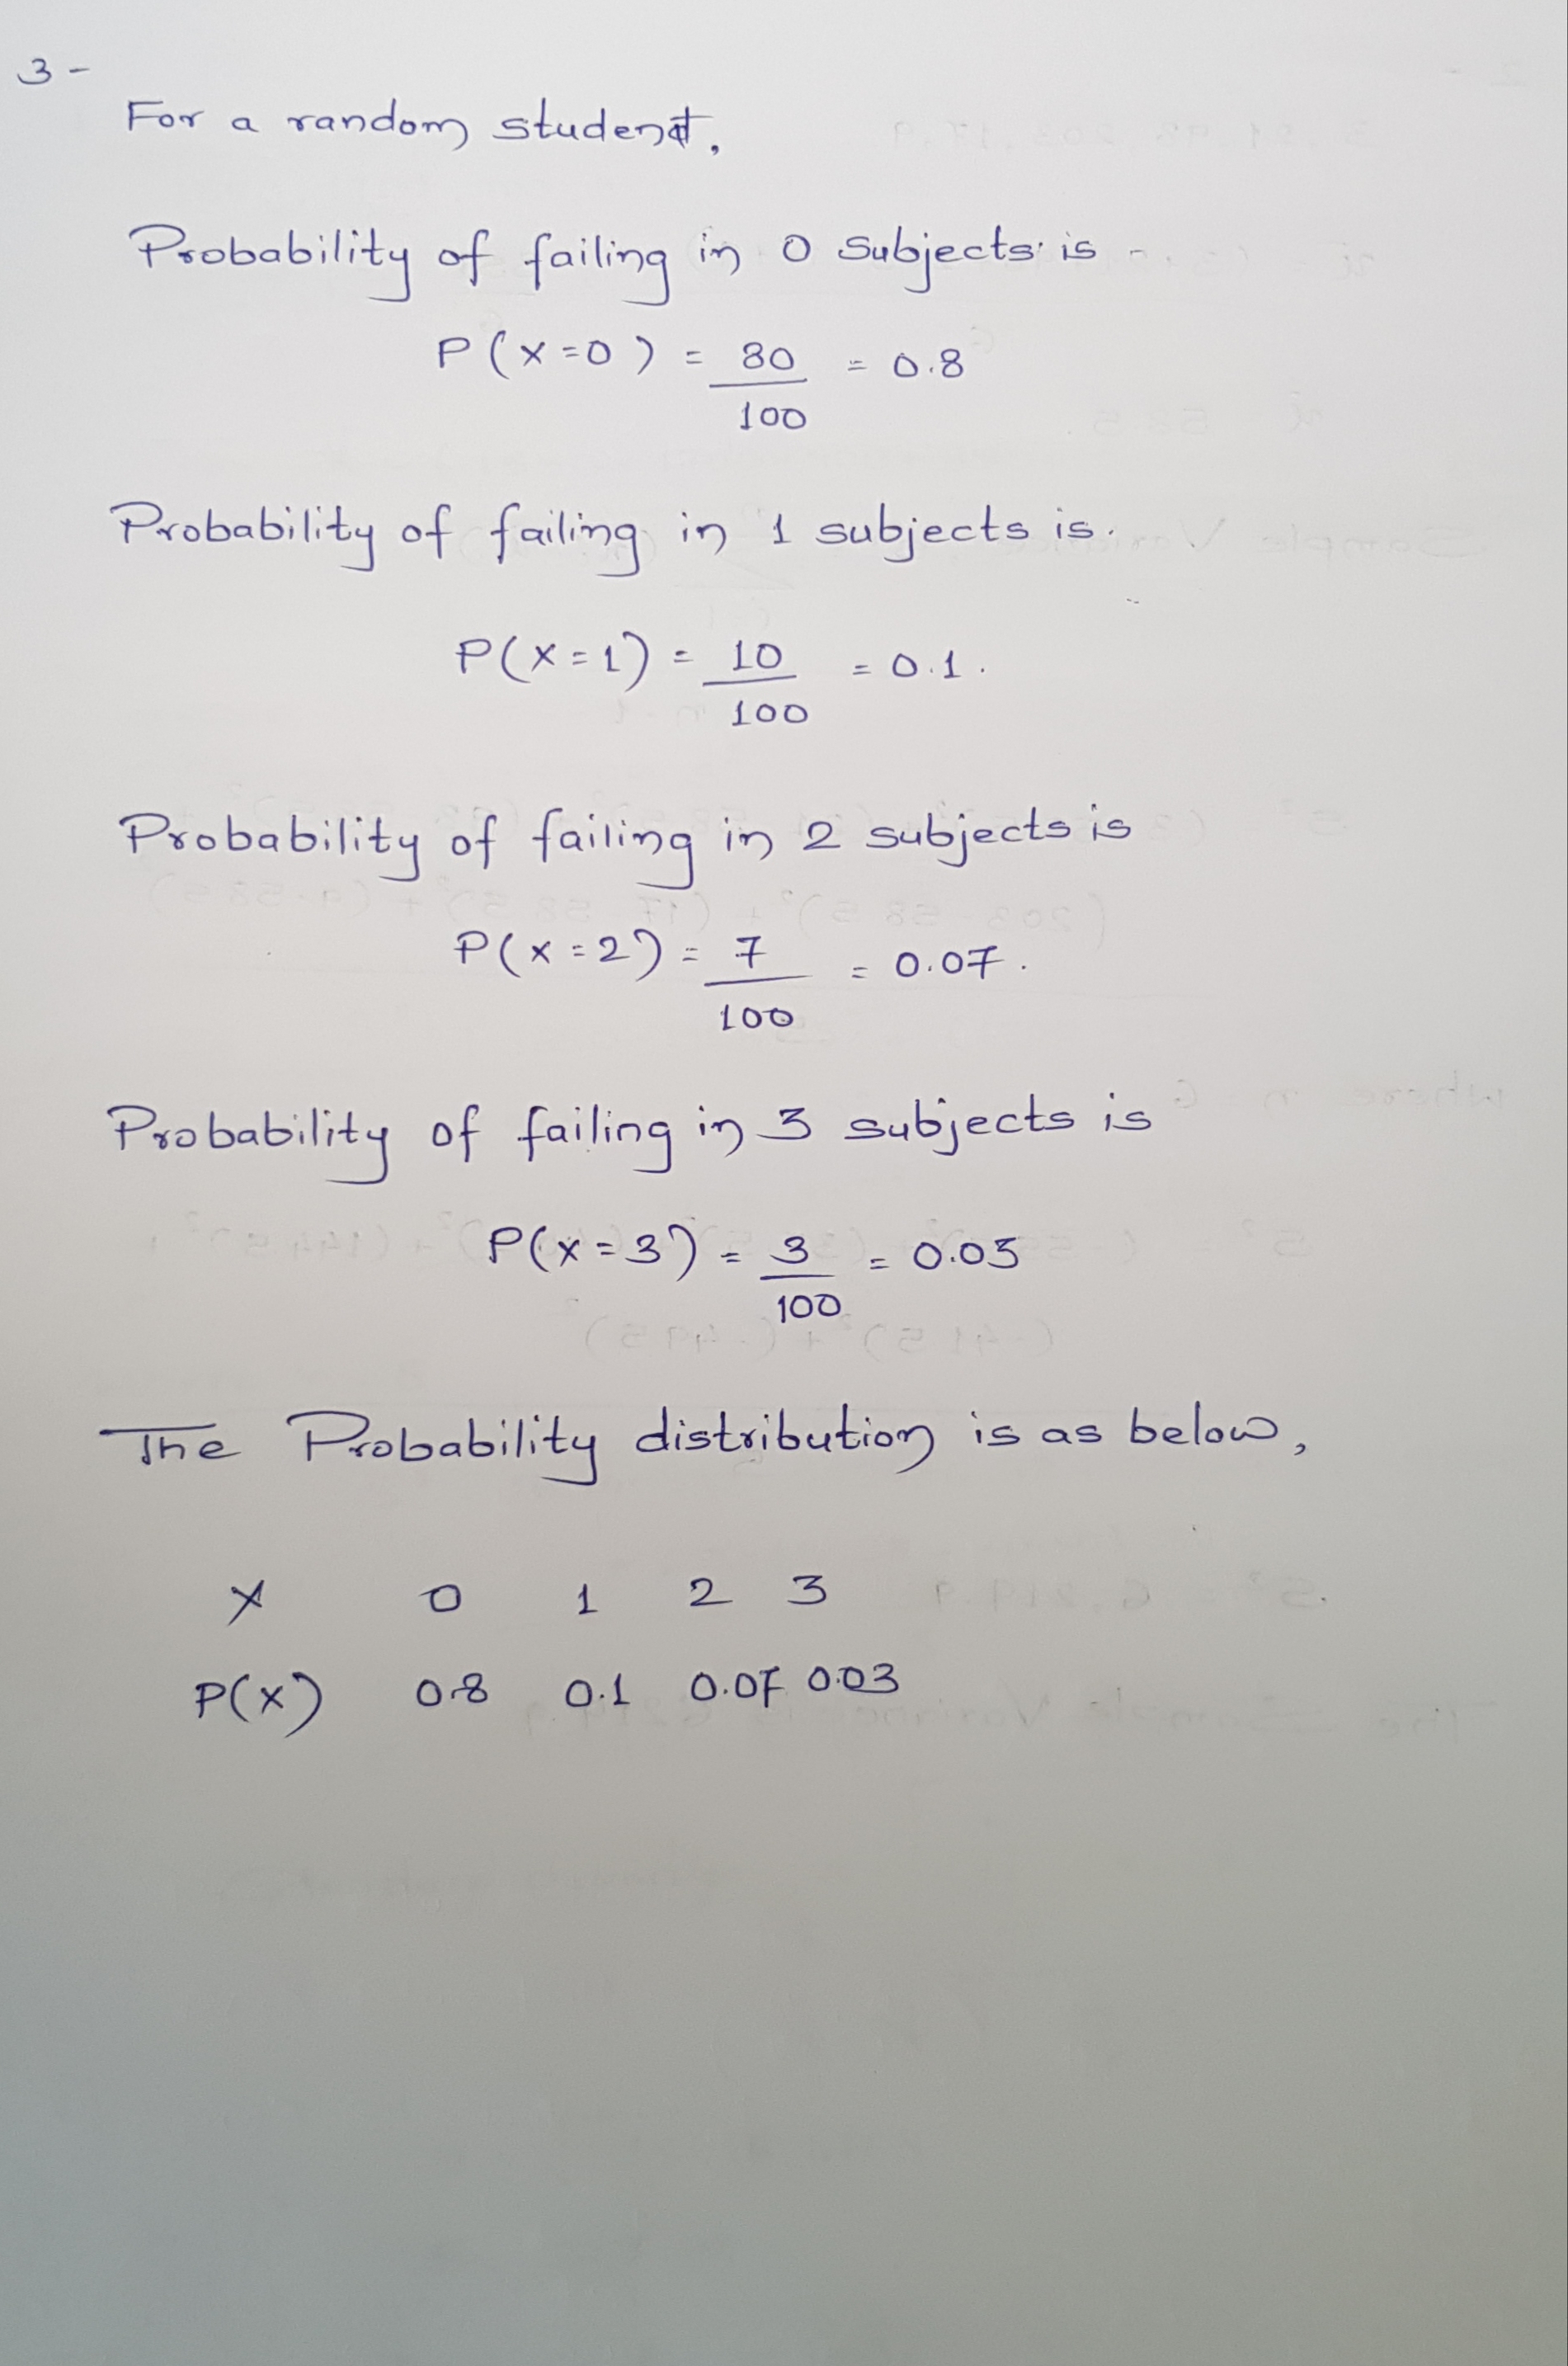 3 -
For a random student,
Probability of failing in 0 subjects is -
P(X=0) = 80/100 = 0.8
Probability of failing in 1 subjects is.
P(X=1) = 10/100 = 0.1.
Probability of failing in 2 subjects is
P(X=2) = 7/100 = 0.07.
Probability of failing in 3 subjects is
P(X=3) = 3/100 = 0.03
The Probability distribution is as below,
X 0 1 2 3
P(X) 0.8 0.1 0.07 0.03